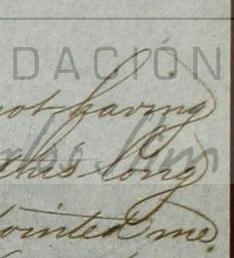 DACIÓN
not having
this long
ointed me.